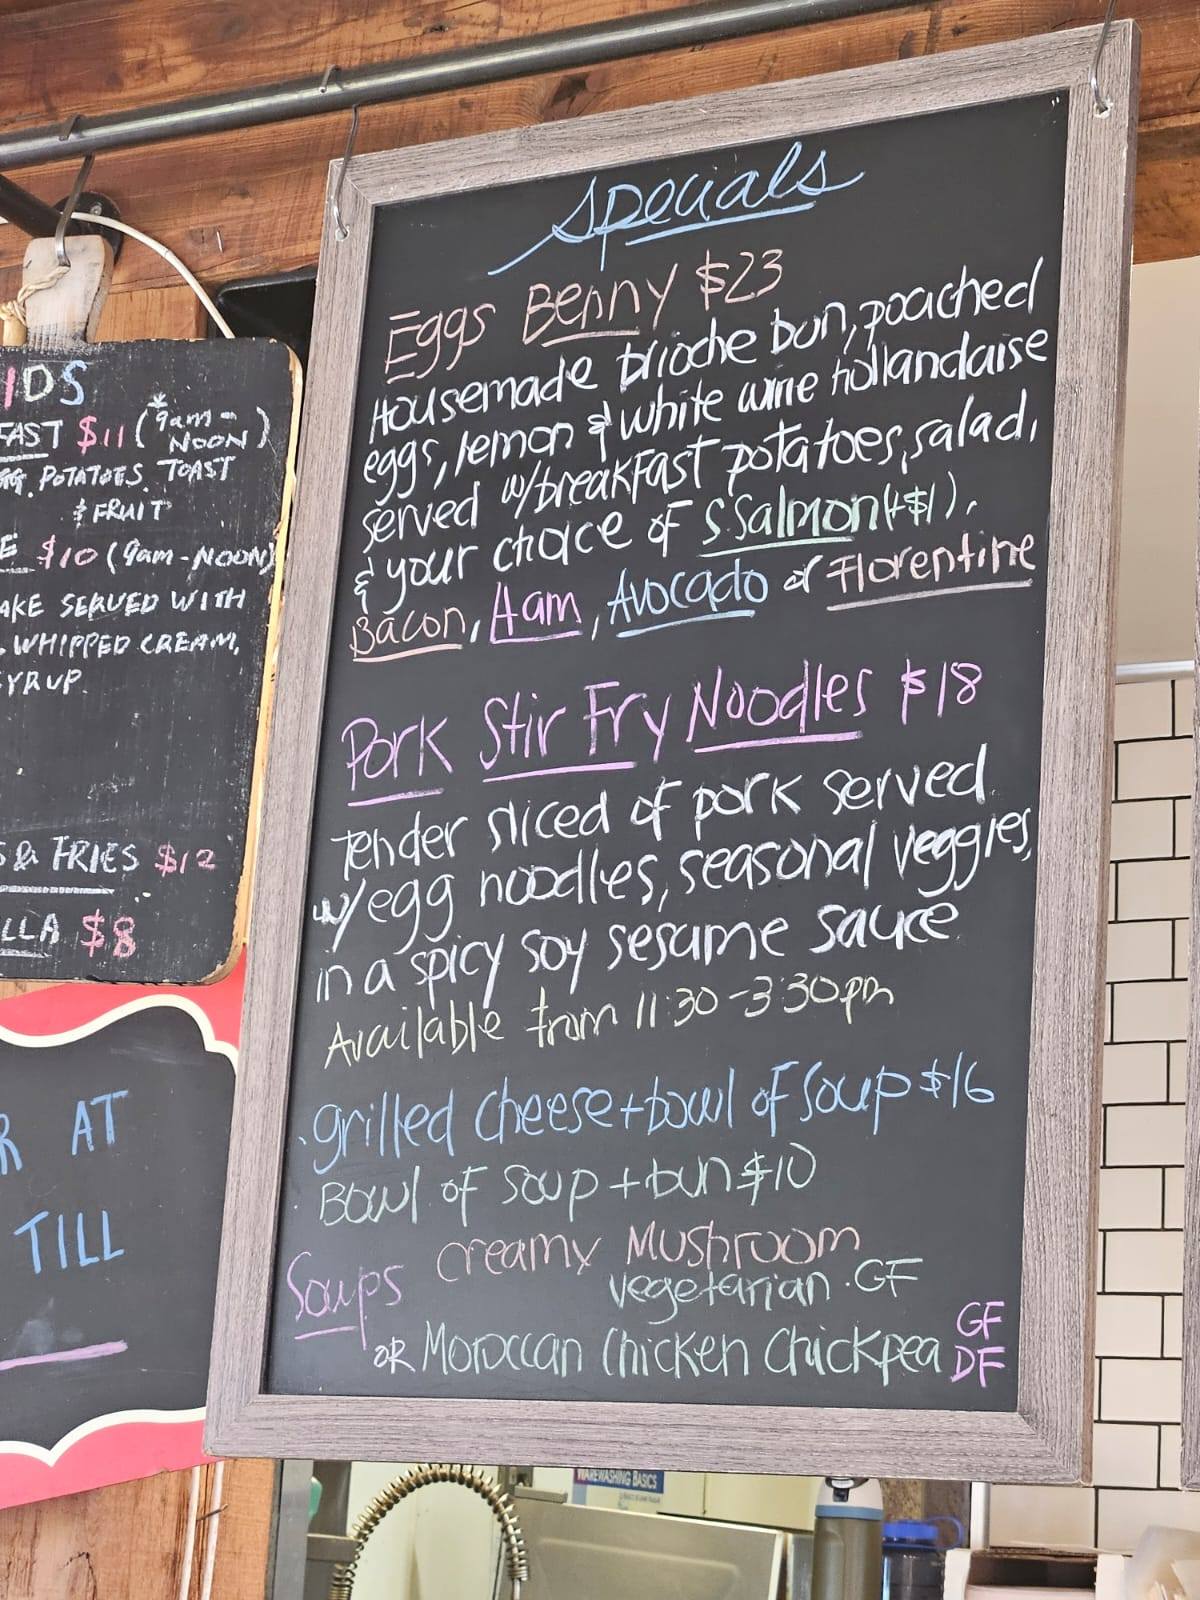 Specials
Eggs Benny $23
Housemade brioche bun, poached
eggs, lemon & white wine hollandaise
served w/breakfast potatoes, salad,
& your choice of S.Salmon(+$1),
Bacon, Ham, Avocado or Florentine
Pork Stir Fry Noodles $18
Tender sliced of pork served
w/egg noodles, seasonal veggies,
in a spicy soy sesame sauce
Available from 11:30-3:30pm
. grilled cheese + bowl of soup $16
. Bowl of soup + bun $10
Soups creamy Mushroom
vegetarian . GF
OR Moroccan Chicken Chickpea GF DF
IDS
FAST $11 (*9am-
NOON)
POTATOES TOAST
& FRUIT
E $10 (9am-NOON)
AKE SERVED WITH
WHIPPED CREAM,
YRUP.
S & FRIES $12
LLA $8
R AT
TILL
WAREWASHING BASICS